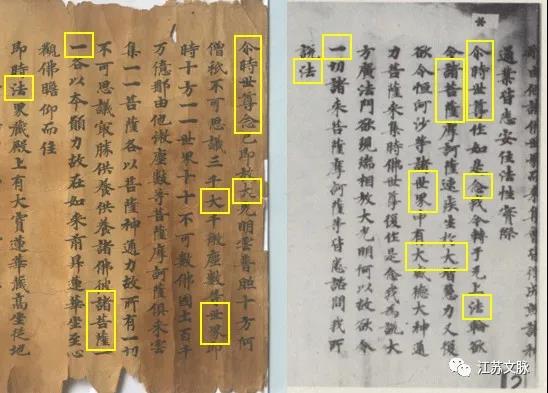 尒時世尊念已即放大光明雲普照十方
僧祇不可思議三千大千微塵數世界
時十方一一世界十十不可數佛國土百千
万億那由他微塵數等菩薩摩訶薩俱來雲
集一一菩薩各以菩薩神通力故所有一切
不可思議㝡勝供養供養諸佛彼諸菩薩一
一各以本願力故在如來前昇蓮華坐至心
觀佛瞻仰而住
即時法界藏殿上有大寶蓮華藏高坐從地
*
過業皆悉安住法性實際
尒時世尊作如是念我今轉于无上法輪欲
令諸菩薩摩訶薩速疾生大願慧力又復
欲令恒河沙等諸世界中有大威德大神通
力菩薩來集時佛世尊復作是念我為說大
方廣法門欲現瑞相放大光明何以故欲令
一切諸來菩薩摩訶薩等皆悉諮問我所
說法
13
江苏文脉